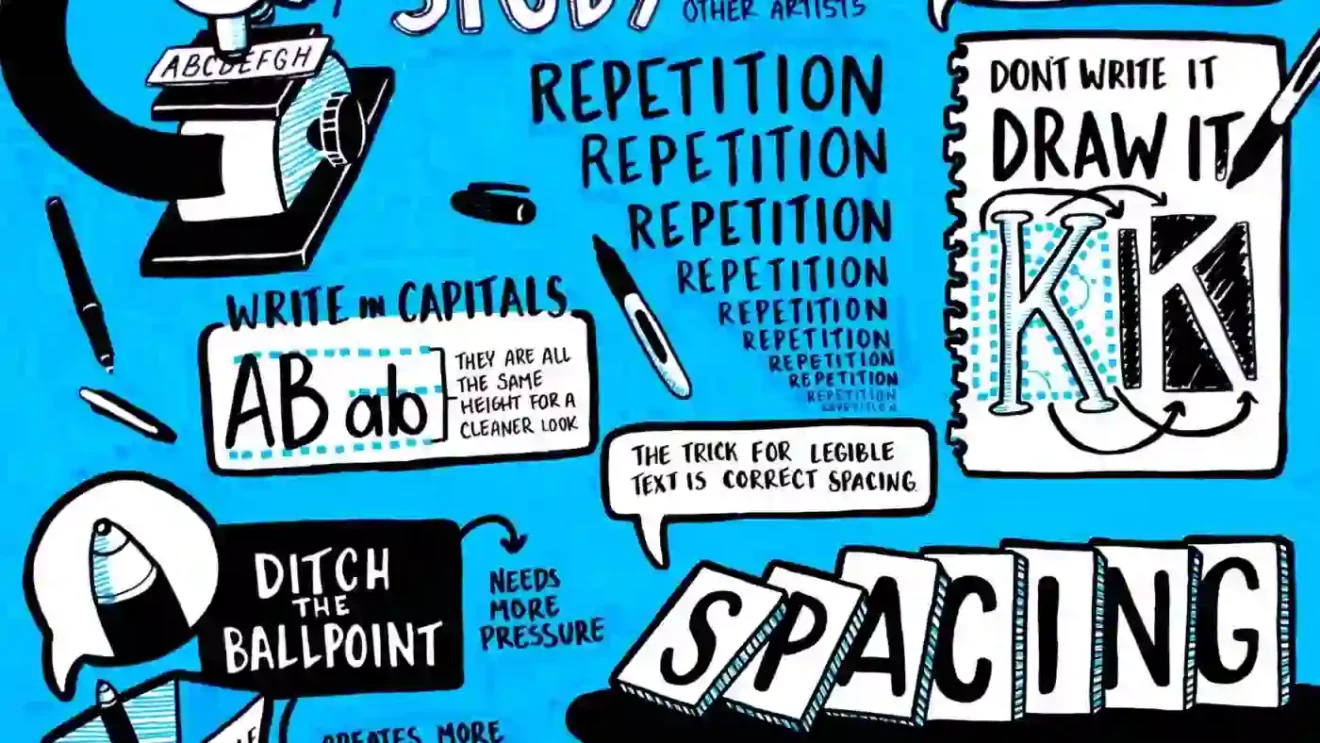 STUDY
OTHER ARTISTS
ABCDEFGH
REPETITION
REPETITION
REPETITION
REPETITION
REPETITION
REPETITION
REPETITION
REPETITION
REPETITION
REPETITION
DON'T WRITE IT
DRAW IT
K K
WRITE IN CAPITALS
AB ab
THEY ARE ALL
THE SAME
HEIGHT FOR A
CLEANER LOOK
THE TRICK FOR LEGIBLE
TEXT IS CORRECT SPACING
DITCH
THE
BALLPOINT
NEEDS
MORE
PRESSURE
SPACING
CREATES MORE